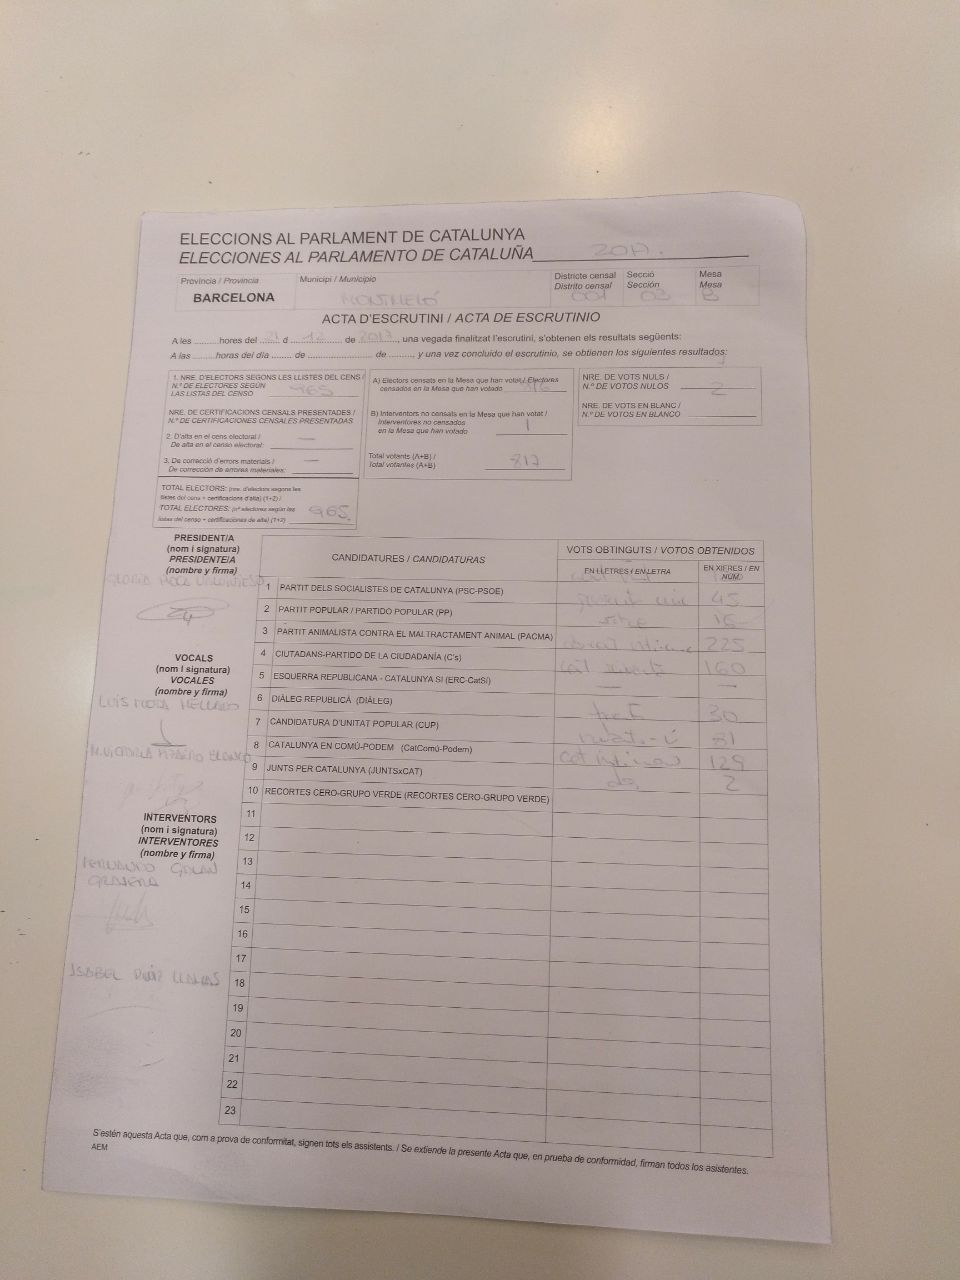 ELECCIONS AL PARLAMENT DE CATALUNYA
ELECCIONES AL PARLAMENTO DE CATALUÑA 2017.
Provincia / Provincia
BARCELONA
Municipi / Municipio
MONTMELÓ
Districte censal
Distrito censal
001
Secció
Sección
03
Mesa
Mesa
B
ACTA D'ESCRUTINI / ACTA DE ESCRUTINIO
A les ......... hores del 21 d 12 de 2017, una vegada finalitzat l'escrutini, s'obtenen els resultats següents:
A las ......... horas del día ....... de ........................ de ........, y una vez concluido el escrutinio, se obtienen los siguientes resultados:
1. NRE. D'ELECTORS SEGONS LES LLISTES DEL CENS /
N.º DE ELECTORES SEGÚN
LAS LISTAS DEL CENSO 965
NRE. DE CERTIFICACIONS CENSALS PRESENTADES /
N.º DE CERTIFICACIONES CENSALES PRESENTADAS
2. D'alta en el cens electoral /
De alta en el censo electoral: —
3. De correcció d'errors materials /
De corrección de errores materiales: —
TOTAL ELECTORS: (nre. d'electors segons les
llistes del cens + certificacions d'alta) (1+2) /
TOTAL ELECTORES: (nº electores según las
listas del censo + certificaciones de alta) (1+2) 965.
A) Electors censats en la Mesa que han votat / Electores
censados en la Mesa que han votado 816
B) Interventors no censats en la Mesa que han votat /
Interventores no censados
en la Mesa que han votado 1
Total votants (A+B) /
Total votantes (A+B) 817
NRE. DE VOTS NULS /
N.º DE VOTOS NULOS 2
NRE. DE VOTS EN BLANC /
N.º DE VOTOS EN BLANCO
PRESIDENT/A
(nom i signatura)
PRESIDENTE/A
(nombre y firma)
GLORIA
VOCALS
(nom i signatura)
VOCALES
(nombre y firma)
LUIS MELLADO
M. VICTORIA BLANCO
INTERVENTORS
(nom i signatura)
INTERVENTORES
(nombre y firma)
FERNANDO GALAN
ISABEL
CANDIDATURES / CANDIDATURAS
VOTS OBTINGUTS / VOTOS OBTENIDOS
EN LLETRES / EN LETRA
EN XIFRES / EN
NÚM.
1 PARTIT DELS SOCIALISTES DE CATALUNYA (PSC-PSOE) 45
2 PARTIT POPULAR / PARTIDO POPULAR (PP) 16
3 PARTIT ANIMALISTA CONTRA EL MALTRACTAMENT ANIMAL (PACMA) 225
4 CIUTADANS-PARTIDO DE LA CIUDADANÍA (C's) 160
5 ESQUERRA REPUBLICANA - CATALUNYA SI (ERC-CatSí) — —
6 DIÀLEG REPUBLICÀ (DIÀLEG) 30
7 CANDIDATURA D'UNITAT POPULAR (CUP) 81
8 CATALUNYA EN COMÚ-PODEM (CatComú-Podem) 129
9 JUNTS PER CATALUNYA (JUNTSxCAT) dos 2
10 RECORTES CERO-GRUPO VERDE (RECORTES CERO-GRUPO VERDE)
11
12
13
14
15
16
17
18
19
20
21
22
23
S'estén aquesta Acta que, com a prova de conformitat, signen tots els assistents. / Se extiende la presente Acta que, en prueba de conformidad, firman todos los asistentes.
AEM